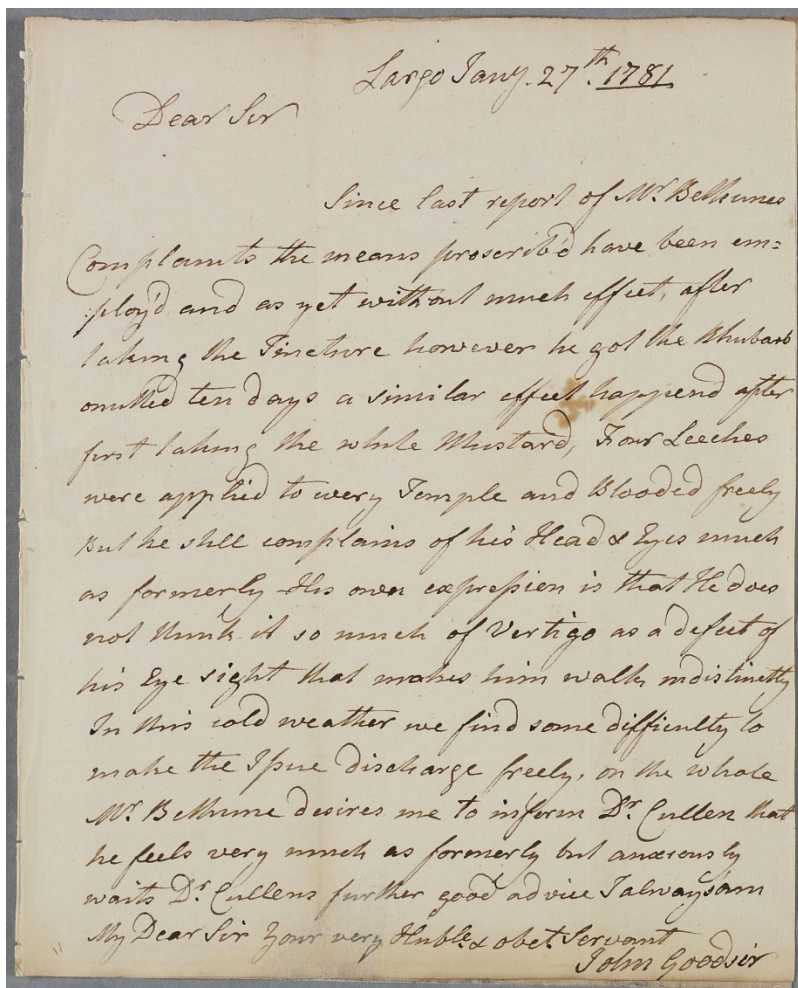 Largo Jany. 27th. 1781
Dear Sir
Since last report of Mr. Bethunes
Complaints the means proscrib'd have been em=
ploy'd and as yet without much effect, after
taking the Tincture however he got the Rhubarb
omitted ten days a similar effect happend after
first taking the whole Mustard, Four Leeches
were applied to every Temple and Blooded freely
But he still complains of his Head & Eyes much
as formerly His own expression is that He does
not think it so much of Vertigo as a defect of
his Eye sight that makes him walk indistinctly
In this cold weather we find some difficulty to
make the Issue discharge freely, on the whole
Mr. Bethune desires me to inform Dr. Cullen that
he feels very much as formerly but anxiously
waits Dr. Cullens further good advice I always am
My Dear Sir Your very Huble. & obet. Servant
John Goodsir